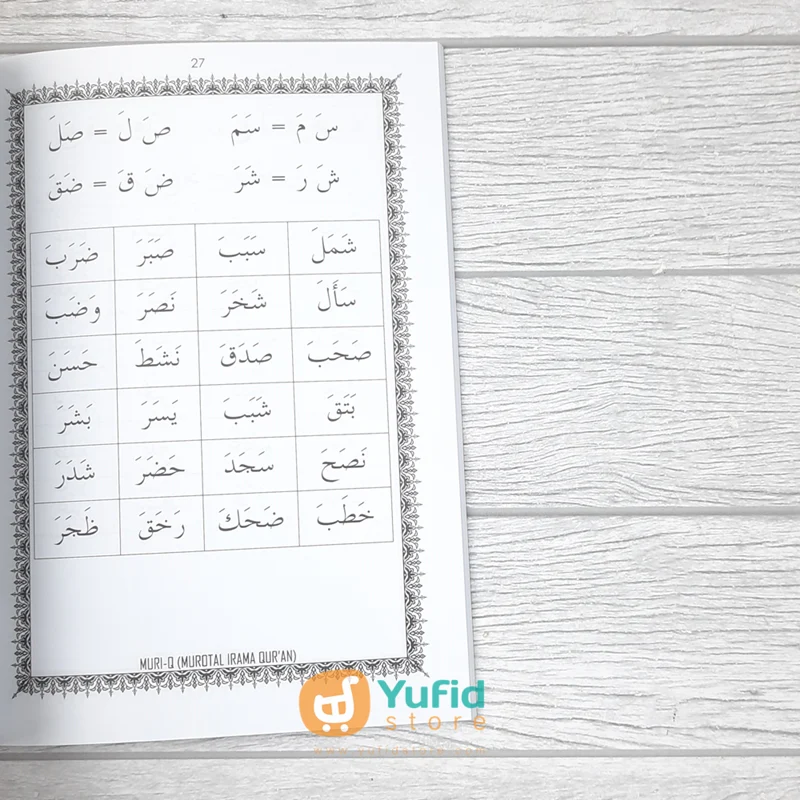 27
سَ مَ = سَمَ صَ لَ = صَلَ
شَ رَ = شَرَ ضَ قَ = ضَقَ
شَمَلَ سَبَبَ صَبَرَ ضَرَبَ
سَأَلَ شَخَرَ نَصَرَ وَضَبَ
صَحَبَ صَدَقَ نَشَطَ حَسَنَ
بَتَقَ شَبَبَ يَسَرَ بَشَرَ
نَصَحَ سَجَدَ حَضَرَ شَدَرَ
خَطَبَ ضَحَكَ رَخَقَ ظَجَرَ
MURI-Q (MUROTAL IRAMA QUR'AN)
Yufid
store
www.yufidstore.com